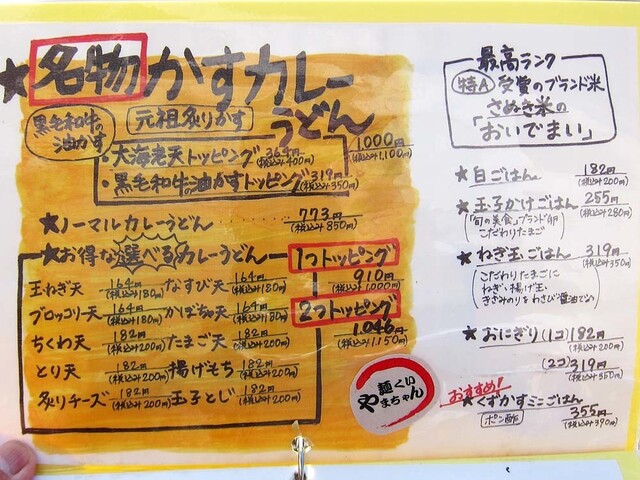 ★名物かすカレーうどん
黒毛和牛の油かす
元祖炙りかす
1,000円
(税込み1,100円)
・大海老天トッピング 364円(税込み400円)
・黒毛和牛の油かすトッピング 319円(税込み350円)
★ノーマルカレーうどん‥‥‥‥773円
(税込み850円)
★お得な選べるカレーうどん
玉ねぎ天 164円(税込み180円) なすび天 164円(税込み180円)
ブロッコリー天 164円(税込み180円) かぼちゃ天 164円(税込み180円)
ちくわ天 182円(税込み200円) たまご天 182円(税込み200円)
とり天 182円(税込み200円) 揚げもち 182円(税込み200円)
炙りチーズ 182円(税込み200円) 玉子とじ 182円(税込み200円)
1つトッピング
910円
(税込み1,000円)
2つトッピング
1,046円
(税込み1,150円)
麺くい
やまちゃん
最高ランク
特A 受賞のブランド米
さぬき米の
「おいでまい」
★白ごはん 182円
(税込み200円)
★玉子かけごはん 255円
(税込み280円)
「旬の美食」ブランド卵
こだわりたまご
★ねぎ玉ごはん 319円
(税込み350円)
こだわりたまごに
ねぎ・揚げ玉・
きざみのりをわさび醤油で
★おにぎり(1コ)182円
(税込み200円)
(2コ)319円
(税込み350円)
おすすめ!
★くずかすミニごはん
ポン酢
355円
(税込み390円)